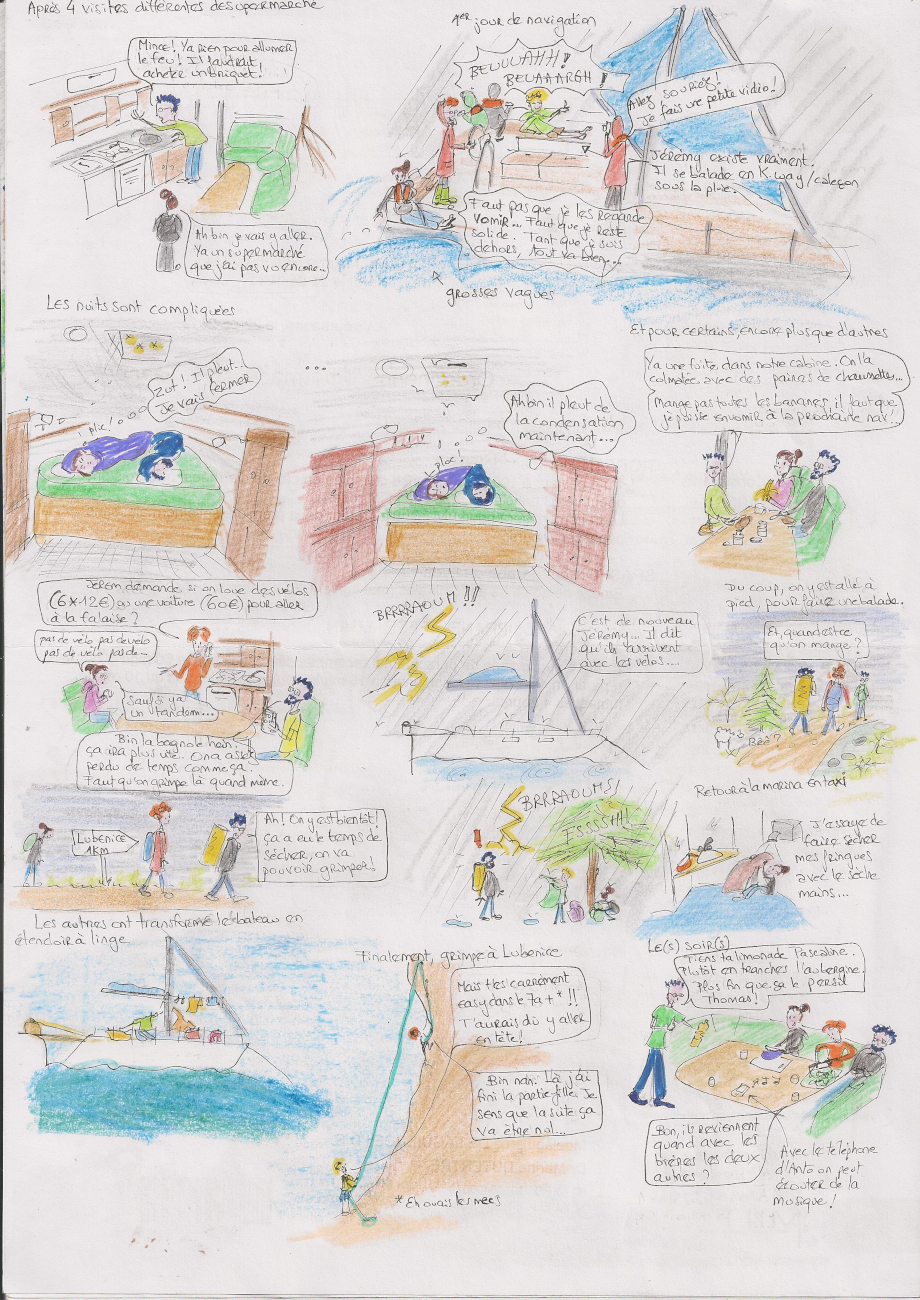 Après 4 visites différentes de supermarché
Mince! Ya rien pour allumer
le feu! Il faudrait
acheter un briquet!
Ah bin je vais y aller.
Ya un supermarché
que j'ai pas vu encore...
1er jour de navigation
BEUUUAHH!
BEUAAARGH!
Allez souriez!
Je fais une petite vidéo!
Jérémy existe vraiment.
Il se balade en K-way/caleçon
sous la pluie.
Faut pas que je les regarde
vomir... Faut que je reste
solide. Tant que je suis
dehors, tout va bien...
grosses vagues
Les nuits sont compliquées
Zut! Il pleut...
Je vais fermer
plic!
...
Ah bin il pleut de
la condensation
maintenant...
ploc!
Et pour certains, encore plus que d'autres
Ya une fuite dans notre cabine. On l'a
colmatée avec des paires de chaussettes...
Mange pas toutes les bananes, il faut que
je puisse en vomir à la prochaine nav!..
Jerem demande si on loue des vélos
(6x12€) ou une voiture (60€) pour aller
à la falaise?
pas de vélo pas de vélo
pas de vélo pas de...
Sauf si ya
un tandem...
Bin la bagnole hein.
ça ira plus vite. On a assez
perdu de temps comme ça.
Faut qu'on grimpe là quand même.
BRRRAOUM!!
C'est de nouveau
Jérémy... Il dit
qu'ils arrivent
avec les vélos...
Du coup, on y est allé à
pied, pour faire une balade.
Et, quand est-ce
qu'on mange?
Bêê?
Lubenice
1KM
Ah! On y est bientôt!
ça a eu le temps de
sécher, on va
pouvoir grimper!
BRRRAOUMS!
FSSSSHH!
Retour à la marina en taxi
J'essaye de
faire sécher
mes fringues
avec le sèche
mains...
Les autres ont transformé le bateau en
étendoir à linge
Finalement, grimpe à Lubenice
Mais t'es carrément
easy dans le 7a+*!!
T'aurais dû y aller
en tête!
Bin nan. Là j'ai
fini la partie fille. Je
sens que la suite ça
va être nul...
* Eh ouais les mecs
Le(s) soir(s)
Tiens ta limonade Pascaline.
Plutôt en tranches l'aubergine.
Plus fin que ça le persil
Thomas!
Bon, ils reviennent
quand avec les
bières les deux
autres?
Avec le téléphone
d'Anto on peut
écouter de la
musique!